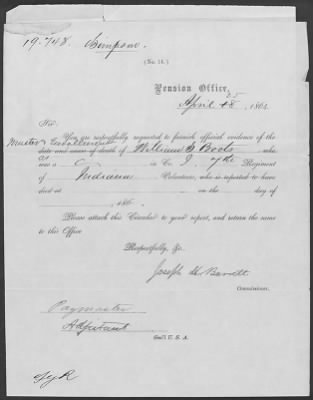 19.748 Simpson.
(No. 13.)
Pension Office,
25
April 18, 1864
Sir:
You are respectfully requested to furnish official evidence of the
Muster & Enrollment
date and cause of death of William G. Boots who
as
was a in Co. I. 7the Regiment
of Indiana Volunteers, who is reported to have
died at on the day of
, 186 .
Please attach this Circular to your report, and return the same
to this Office
Respectfully, &c.
Joseph H. Barrett
Commissioner.
Paymaster
Adjutant
Gen'l U. S. A.